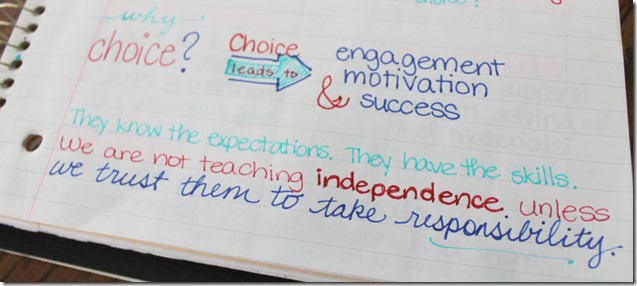 choice?
why
choice?
Choice
leads to
engagement
motivation
& success
They know the expectations. They have the skills.
We are not teaching independence. unless
we trust them to take responsibility.